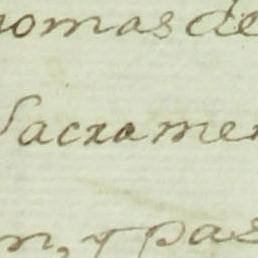 homas de
Sacramen
n, y pas